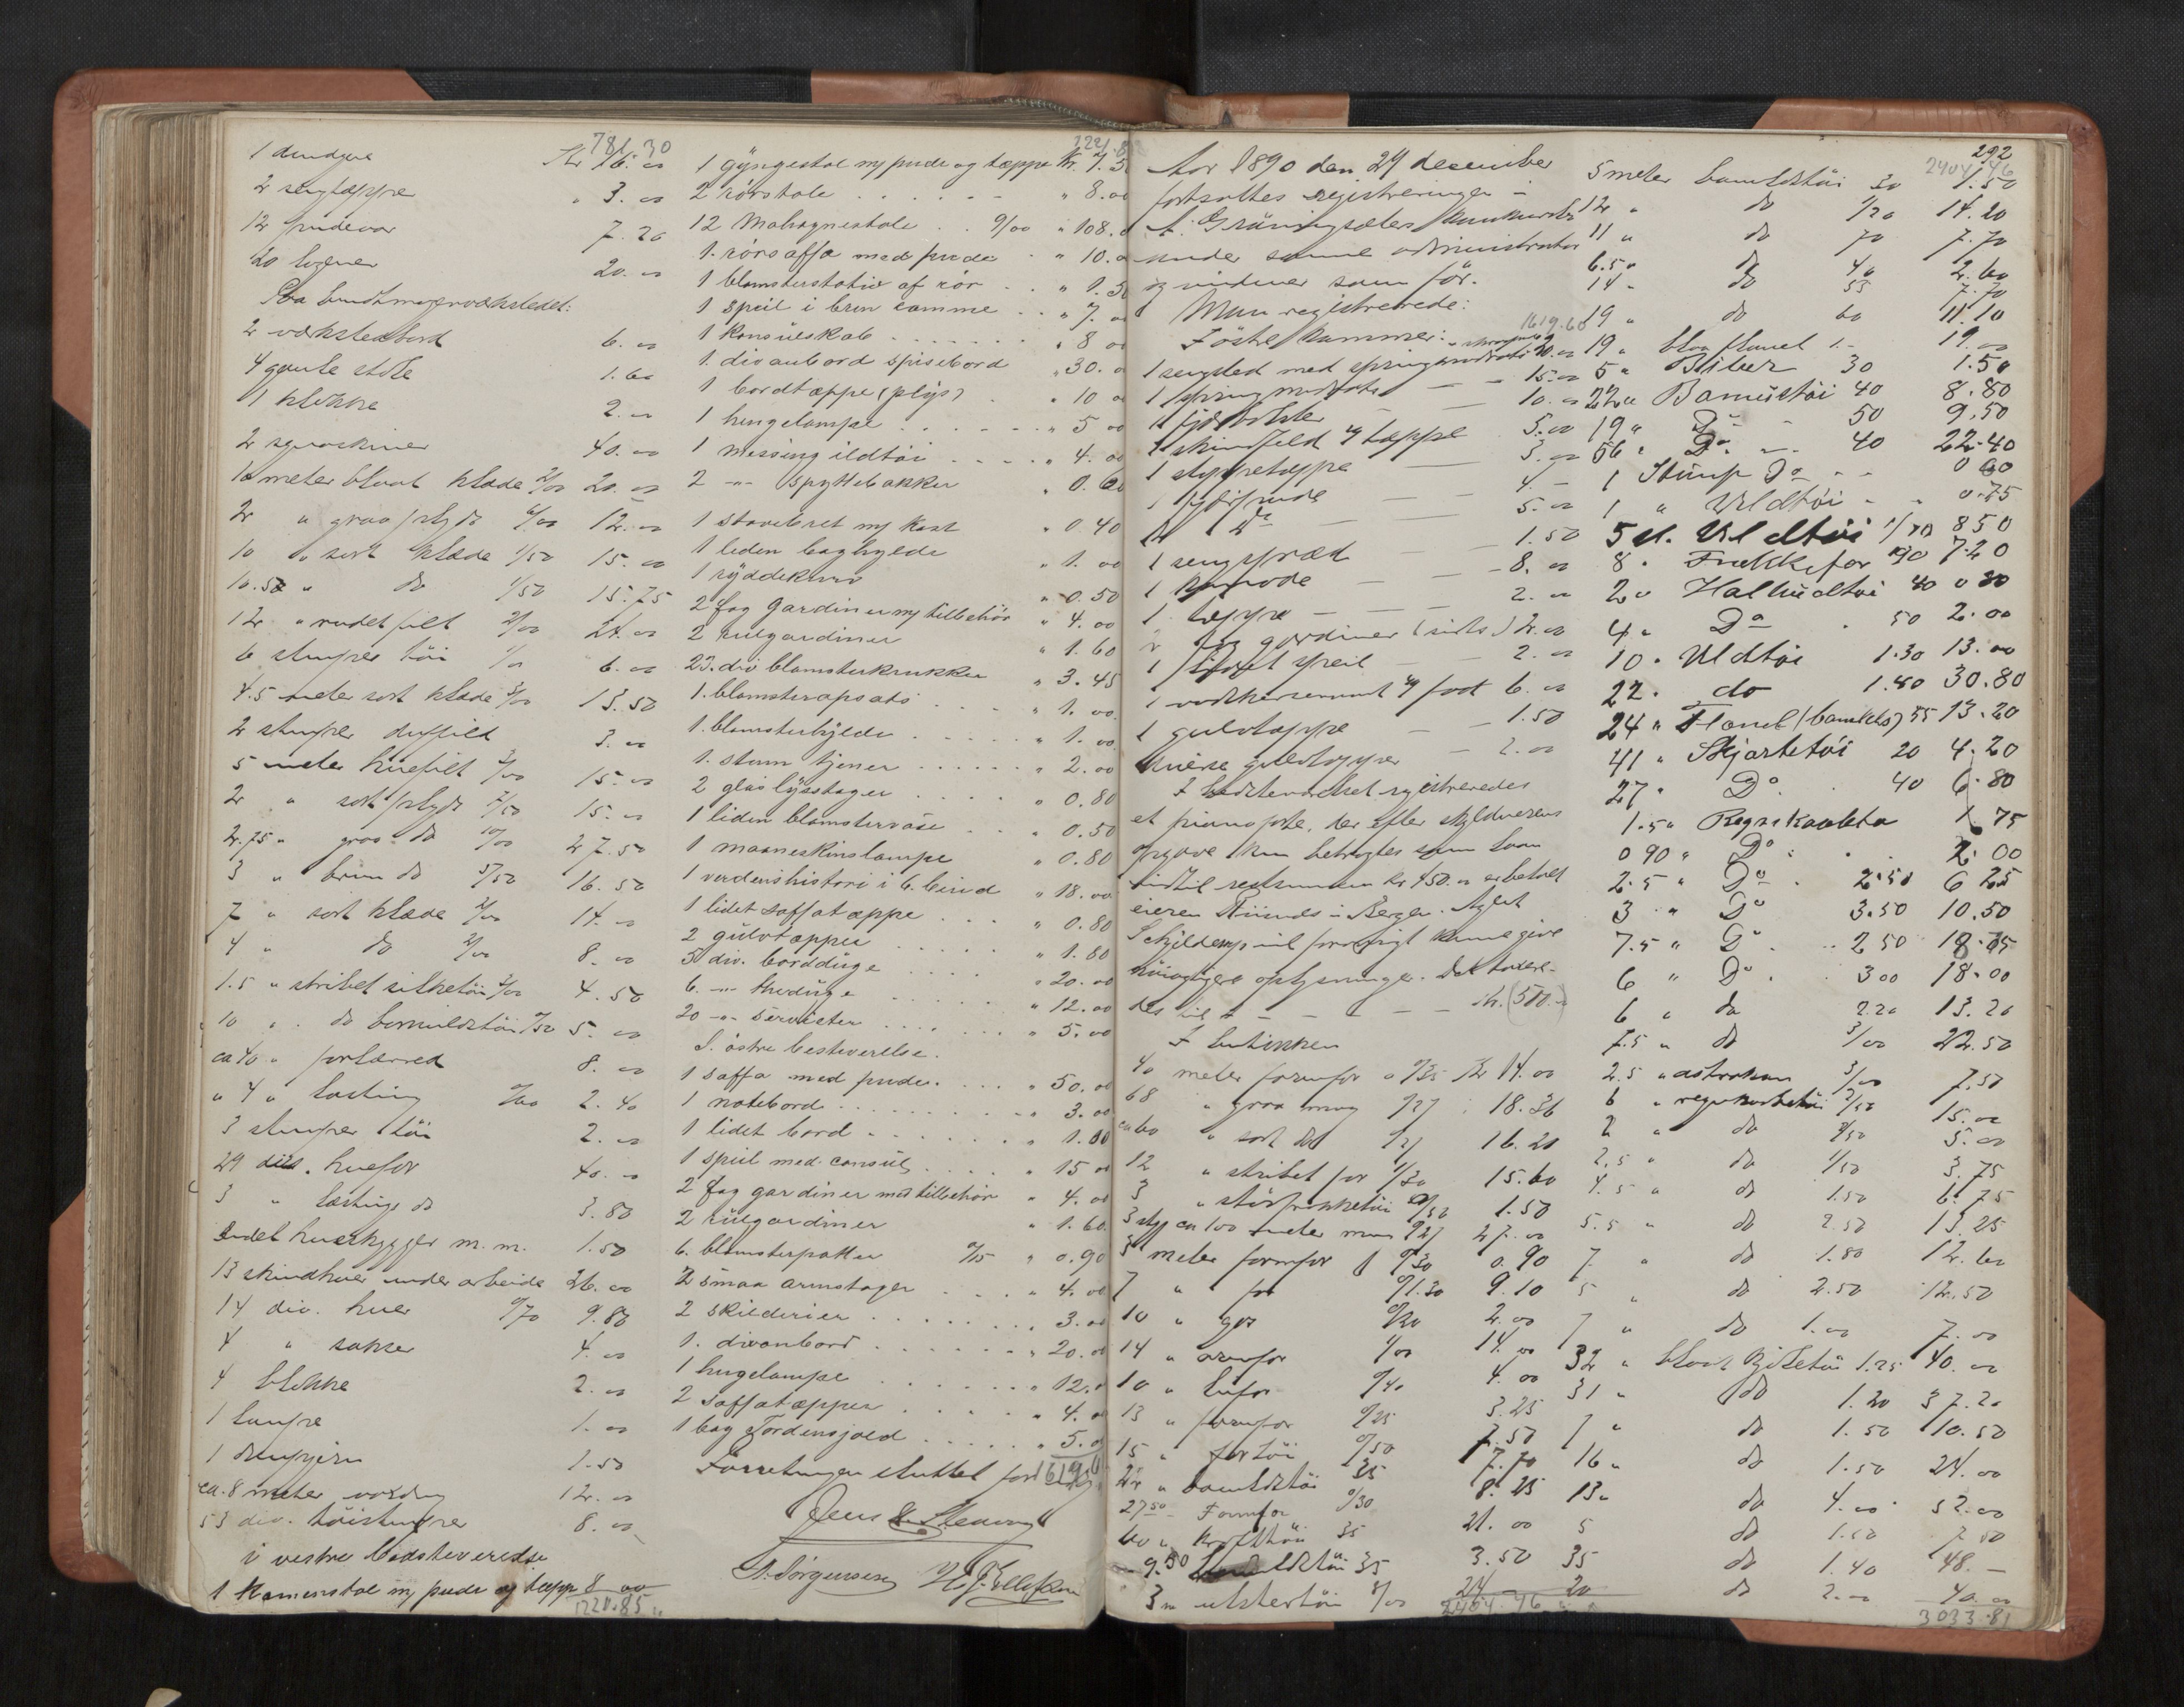 781.30
1 dundyne Kr 16.00
2 sengtæpper " 3.00
12 pudevor 7.20
20 lagener 20.00
Paa buntmagerværkstedet:
2 værkstedbord 6.00
4 gamle stole 1.60
1 klokke 2.00
2 symaskiner 40.00
10 meter blaat klæde 2/00 20.00
2 " graa plyds 6/00 12.00
10 " sort klæde 1/50 15.00
10.50 " do 1/50 15.75
12 " rudet filt 2/00 24.00
6 stumper tøi 1/00 6.00
4.5 meter sort klæde 3/00 13.50
2 stumper duffild 3.00
5 meter huefilt 3/00 15.00
2 " sort plyds 7/50 15.00
2.75 " graa do 10/00 27.50
3 " brun do 5/50 16.50
7 " sort klæde 2/00 14.00
4 " do 2/00 8.00
1.5 " stribet silketøi 3/00 4.50
10 " do bomuldstøi 0/50 5.00
ca 40 " forlærred 8.00
" 4 " lasting 0/60 2.40
3 stumper tøi 2.00
29 dus. huefor 40.00
3 " lastings do 3.80
Endel hueskygger m. m. 1.50
13 skindhuer under arbeide 26.00
14 div. huer 0/70 9.80
4 " sakser 4.00
4 blokke 2.00
1 lampe 1.00
1 1.50
ca. 8 meter 12.00
53 div. tøistumper 8.00
i vestre bedsteverelse
1 kamerstol m/ pude og tæppe 8 00
1221.85
1 gyngestol m/ pude og tæppe Kr. 7.5
2 rörstole " 8.00
12 Mahognestole 9/00 " 108.
1. rörsaffa med pude " 10.
1 blomsterstativ af rör " 1.5
1 speil i brun ramme " 7.
1 konsulskab " 8 00
1. divanbord spisebord " 30.
1 bordtæppe (plys) " 10
1 hengelampe " 5 00
1 messing ildtöi " 4. 00
2 -"- spyttebakker " 0.60
1 støvebret m/ kost " 0.40
1 liden baghylde " 1. 00
1 ryddekurv " 0.50
2 fag gardiner m/ tilbehör " 4. 00
2 rulgardiner " 1.60
23. div blomsterkrukker " 3.45
1. blomsteropsats " 1. 00
1. blomsterhylde " 1. 00
1. stum tjener " 2. 00
2 glas lysstager " 0.80
1 liden blomstervase " 0.50
1 maaneskinslampe " 0.80
1 verdenshistori i 6. bind " 18. 00
1 lidet saffatæppe " 0.80
2 gulvtæpper " 1.80
3 div. bordduge " 20.00
6. -"- theduge " 12.00
20 -"- servietter " 5.00
I. östre besteverelse.
1 saffa med puder " 50.00
1 notebord " 3.00
1 lidet bord " 1.00
1 speil med consul " 15 00
2 fag gardiner med tilbehör " 4. 00
2 rulgardiner " 1.60
6. blomsterpotter 0/15 " 0.90
2 smaa armstager " 4.00
2 skilderier " 3.00
1. divanbord " 20.00
1 hengelampe " 12.
2 saffatæpper " 4. 00
1 bog Tordensjold " 5.0
Forretningen sluttet for 1619.6
S. Jörgensen
Aar 1890 den 29 december
fortsattes registreringen i
A. Gröningsæters konkursbo
under samme administrator
og vidner som för.
Man registrerede:
1619.60
1 sengsted med springmadrats 20.00
1 springmadrats 15.00
10.00
1 skindfeld og tæppe 5.00
1 stoppetæppe 3.00
1 fjærpude 4.-
1 Do 5.00
1 sengspræd 1.50
1 komode 8.00
1 tæppe 2.00
2 fag gardiner (sirts) 2.00
1 lidet speil 2.00
1 vadskeservant m/ fad 6.00
1 gulvtæppe 1.50
diverse gulvtæpper 2.00
I bedsteværelset registreredes
et pianoforte, der efter skyldnerens
opgave kun betragtes som laan
indtil restsummen kr 450.00 er betalt
eieren i Bergen. Agent
forøvrigt kunne give
nøiagtigere oplysninger. Det taxere-
des til Kr. (500.-)
I butikken
40 meter formfor a 0/35 Kr 14.00
68 " graa /27 18.36
ca 60 " sort do 0/27 16.20
12 " stribet for 1/30 15.60
3 " 0/50 1.50
3 stk ca 100 meter 0/27 27.00
3 meter formfor 0/30 0.90
7 " for 0/1.30 9.10
10 " 0/20 2.00
14 " ærmfor 1/00 14.00
10 " 0/40 4.00
13 " formfor 0/25 3.25
15 " fortöi 0/50 7.50
22 " bomuldstöi 35 7.70
27.50 Formfor 0/30 8.25
60 " 35 21.00
9.50 35 3.50
3 m ulstertöi 8/00 24
2404.46
292
2404.46
5 meter bomuldstöi 30 1.50
12 " do 1/20 14.20
11 " do 70 7.70
6.5 " do 40 2.60
14 " do 55 7.70
19 " do 60 11.10
19 " blaa flanel 1.- 19.00
5 " Biber 30 1.50
22 " Bomulstöi 40 8.80
19 " Do 50 9.50
56 " Do 40 22.40
1 Stump Do 0 60
1 " Uldtöi 0.75
5 M. Uldtöi 1/70 8 50
8 " Frakkefor 90 7.20
2 " Halvuldtöi 40 0 80
4 " Do 50 2.00
10 " Uldtöi 1.30 13.00
22 " do 1.40 30.80
24 " Flanel (bomulds) 55 13.20
41 " Skjortetöi 20 4.20
27 " Do 40 6.80
1.5 " Regnkaabetø 1.75
0 90 " Do 2.00
2.5 " Do 2.50 6 25
3 " Do 3.50 10.50
7.5 " Do 2 50 18.75
6 " Do 3 00 18.00
6 " do 2.20 13.20
7.5 " do 3/00 22.50
2.5 " astrakan 3/00 7.50
6 " regnkaabetöi 2/50 15.00
2 " do 2/50 5.00
2.5 " do 1/50 3.75
4.5 " do 1.50 6.75
5.5 " do 2.50 13.25
7 " do 1.80 12.60
5 " do 2.50 12.50
7 " do 1.00 7.00
32 " blaat kjoletöi 1.25 40.00
31 " do 1.20 37.20
7 " do 1.50 10.50
16 " do 1.50 24.00
13 " do 4.00 52.00
5 do 1.50 7 50
35 do 1.40 48.-
20 do 2.00 40.00
3033.81